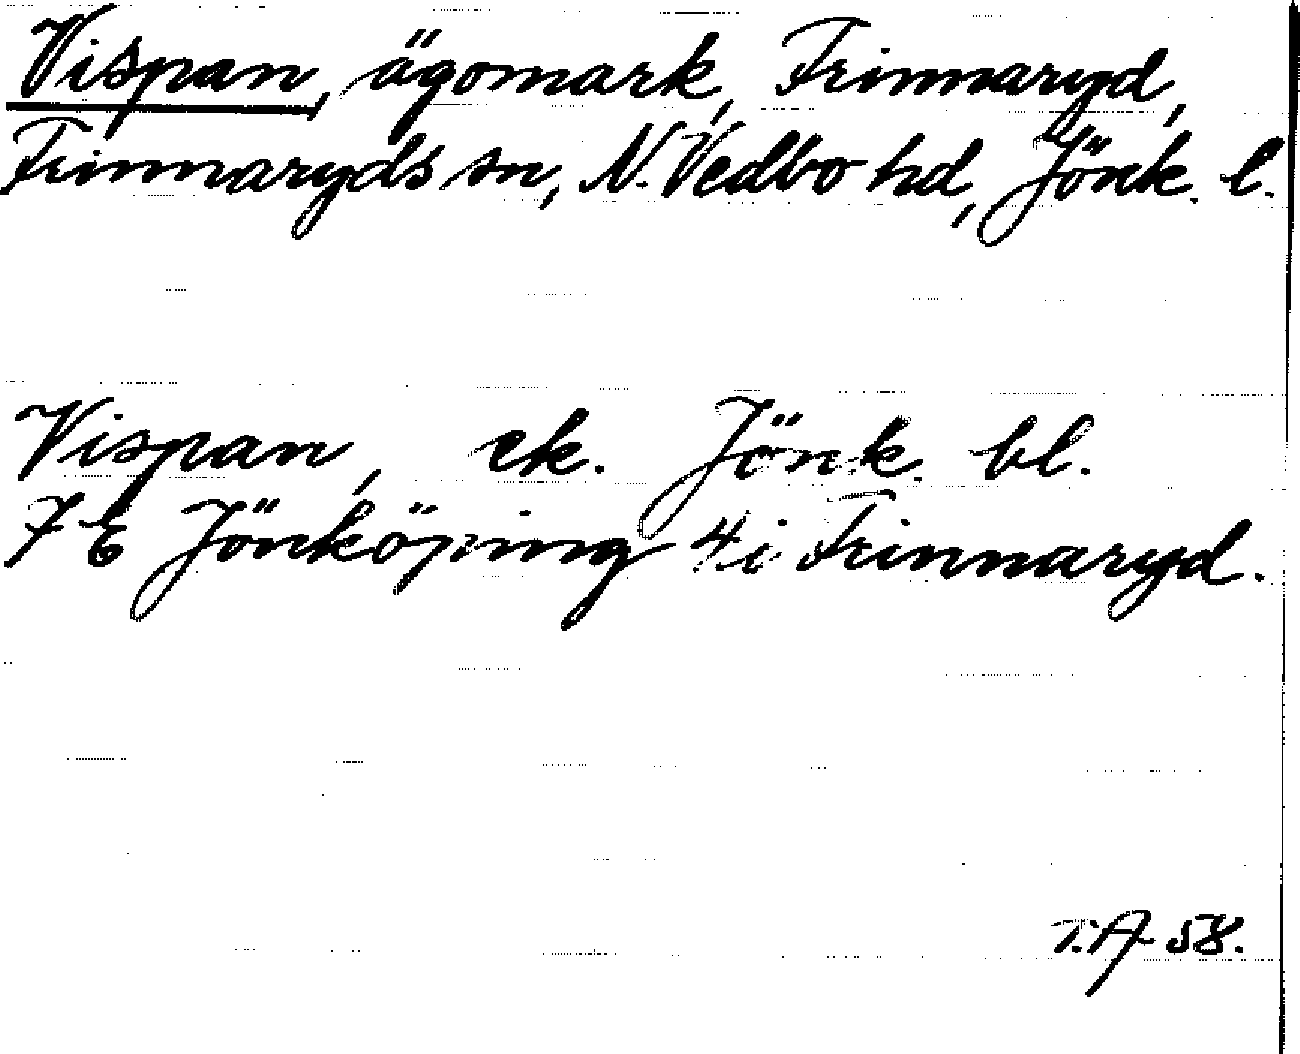 Vispan, ägomark, Frinnaryd,
Frinnaryds sn, N. Vedbo hd, Jönk. l.
Vispan, ek. Jönk. bl.
7 E Jönköping 4 i Frinnaryd.
T.A 58.